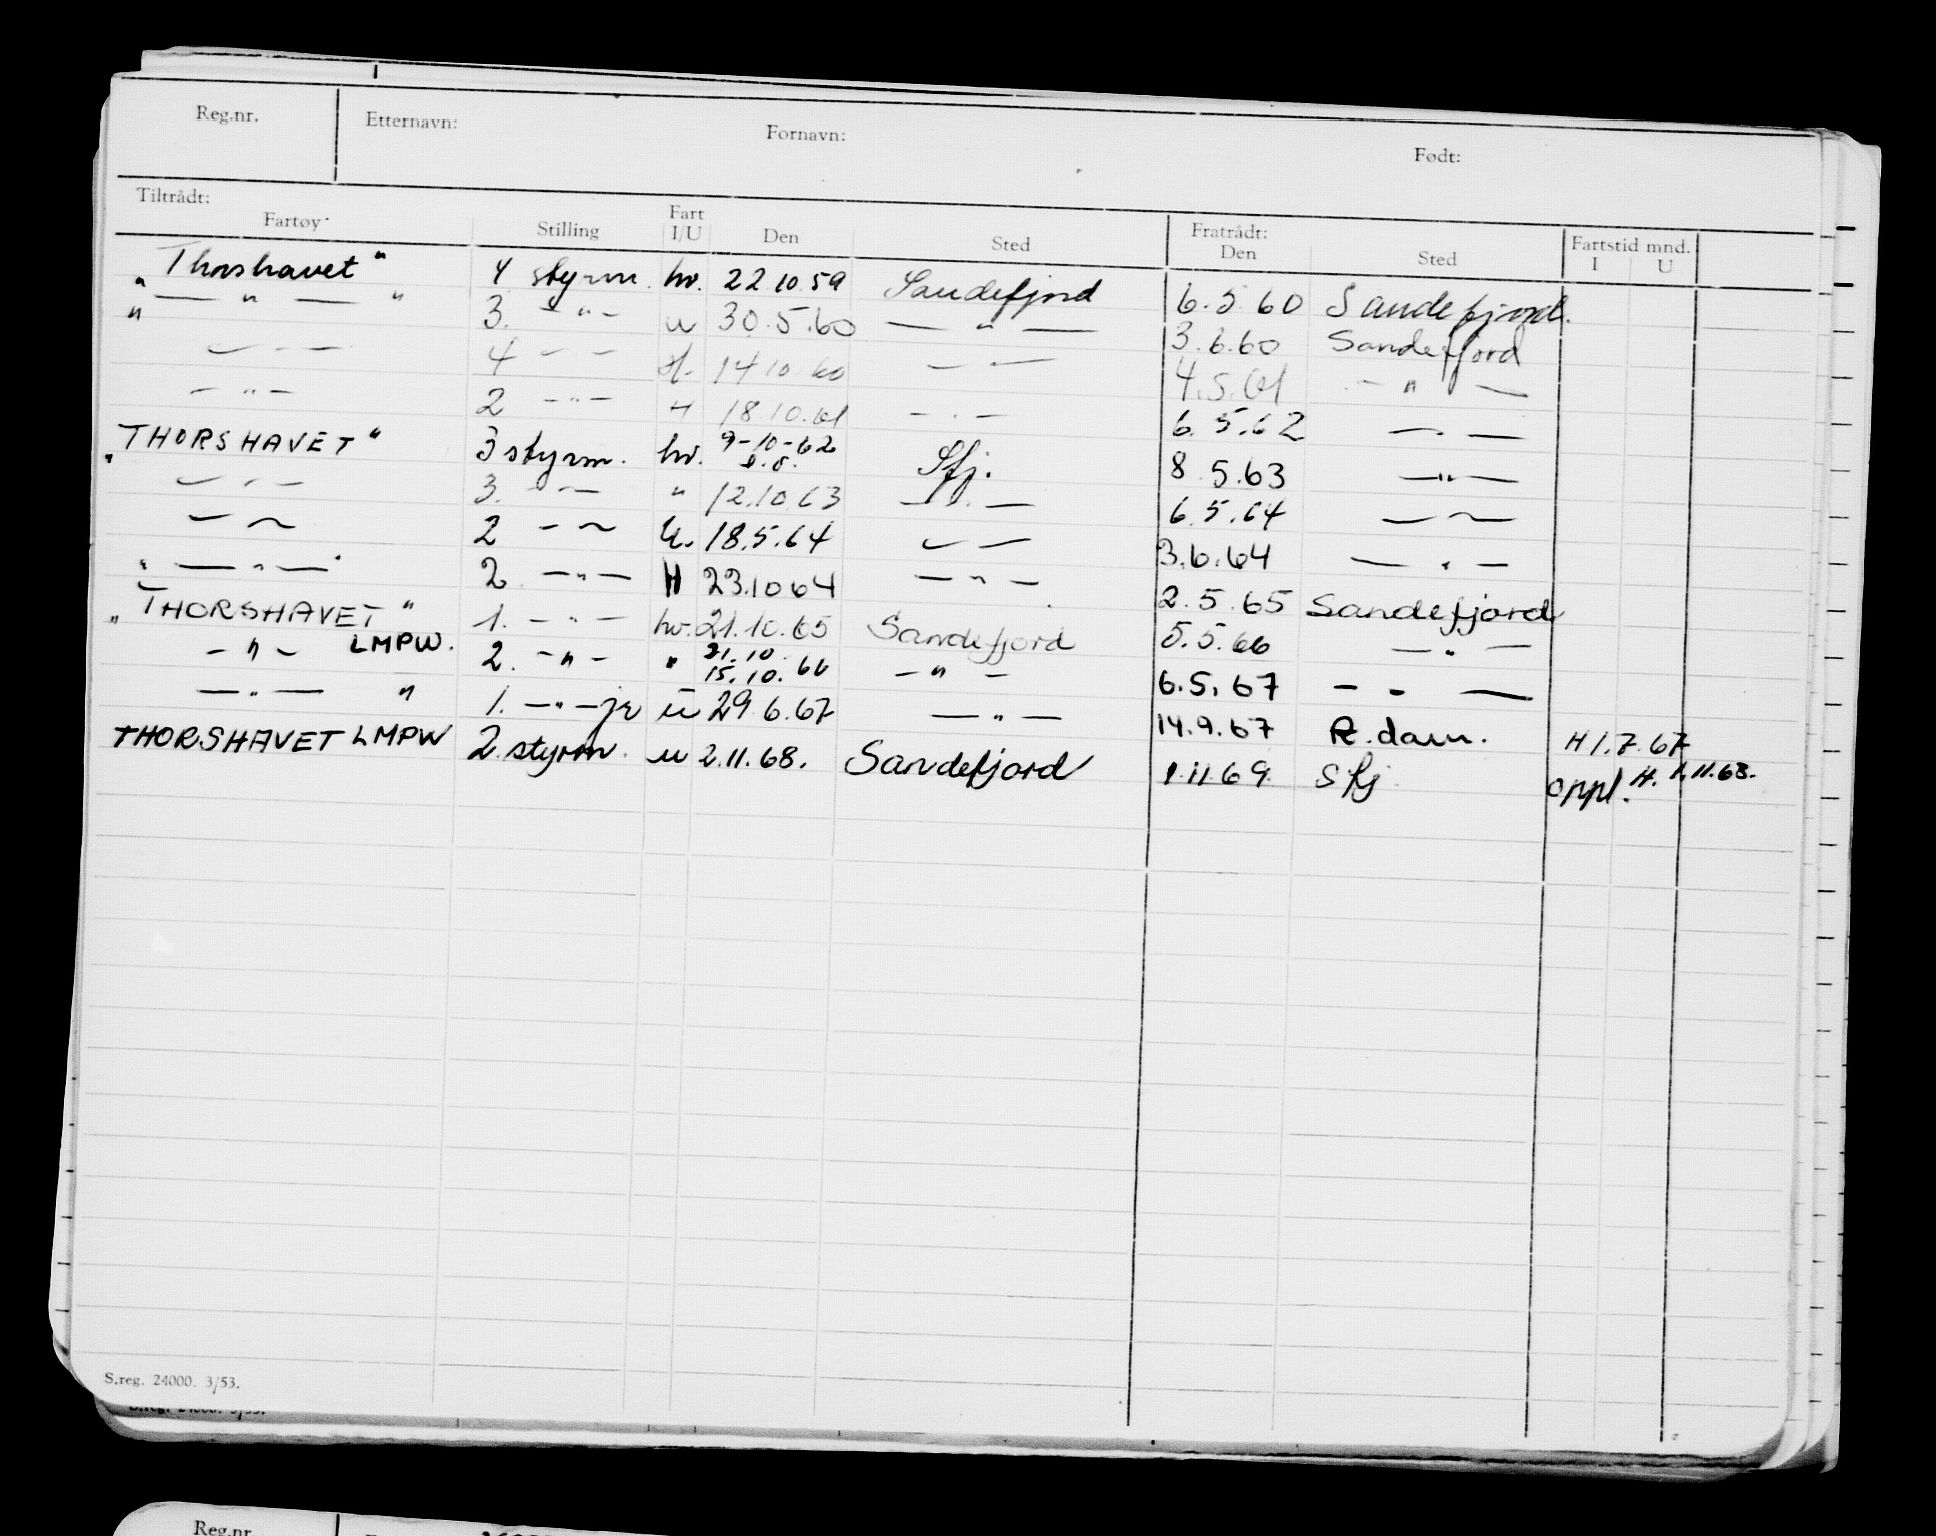 Reg.nr. Etternavn: Fornavn: Født:
Tiltrådt: Fratrådt:
Fartøy Stilling Fart I/U Den Sted Den Sted Fartstid mnd. I U
"Thorshavet" 4 styrm. hv. 22 10 59 Sandefjord 6.5 60 Sandefjord.
" — " — " 3. — " — u 30.5.60 — " — 3.6.60 Sandefjord
— " — 4 — — H. 14 10 60 — — 4.5.61 — " —
— " — 2 — " — H 18.10.61 — " — 6.5.62 — " —
"THORSHAVET" 3 styrm. hv. 9-10-62 Sfj. 8 5.63 — " —
— " — 3. — " — " 12.10.63 — " — 6.5.64 — —
— — 2 — — U. 18.5.64 — — 3.6.64 — " —
" — " — " 2 — " — H 23.10 64 — " — 2.5.65 Sandefjord
"THORSHAVET" 1. — " — hv. 21.10.65 Sandefjord 5.5.66 — " —
— " — LMPW. 2. — " — " 21.10. 15.10.66 — " — 6.5.67 — " —
— " — " 1. — " — jr u 29 6.67 — " — 14.9.67 R.dam. H 1.7.67
THORSHAVET LMPW 2. styrm. u 2.11.68. Sandefjord 1.11 69. Sfj oppl. H. 1.11.68.
S.reg. 24000. 3/53.
Reg.nr.